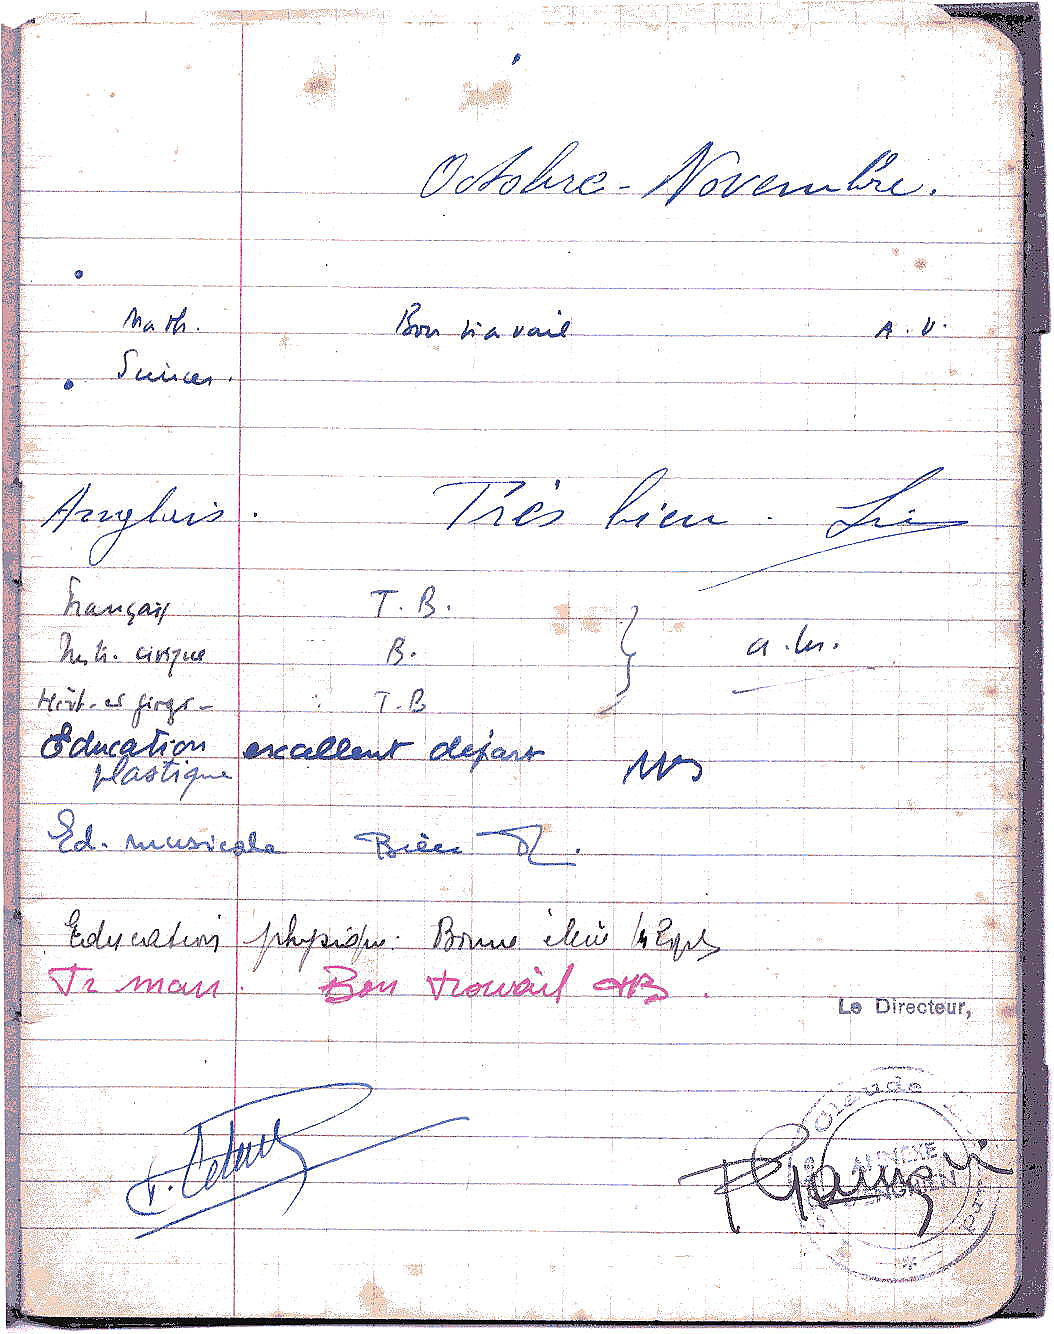 Octobre - Novembre.
Math. Bon travail A.V.
Sciences.
Anglais. Très bien.
Français T.B.
Instr. civique B. a.m.
Hist. et géogr- : T.B
Education excellent départ
plastique
Ed. musicale Bien
Education physique: Bonne élève
Tr man. Bon travail
Le Directeur,
Claude
ANNEXE
D'ENGHIEN